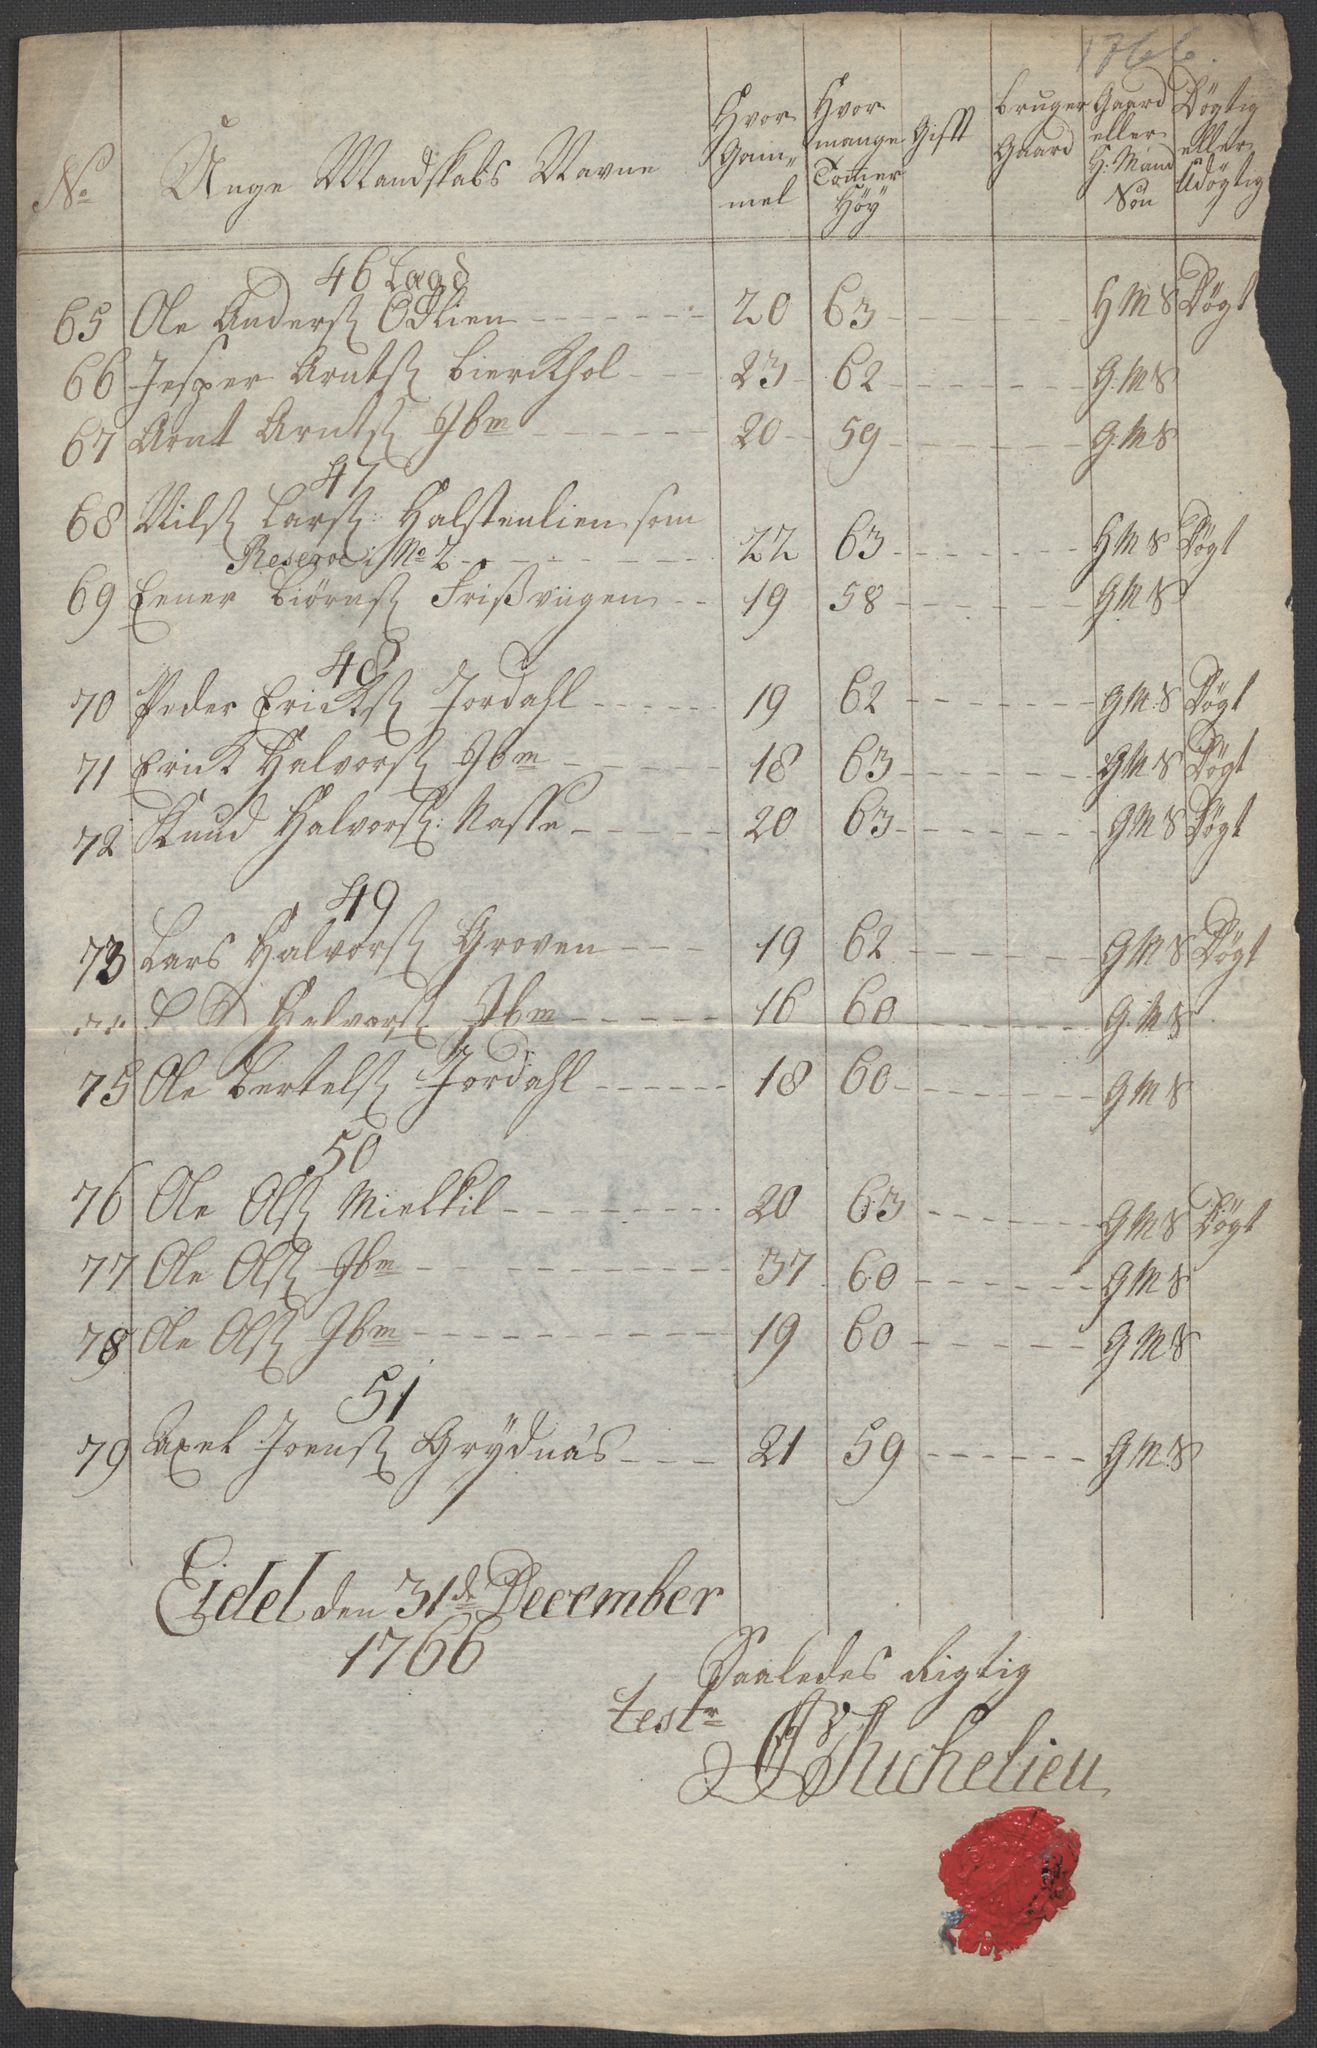 1766.
No Unge Mandskabs Navne Hvor Gam„ mel Hvor mange Tomer Höÿ Gifft bruger Gaard Gaard eller H: Mand Sön Dögtig eller Udögtig
46 Lagd
65 Ole Andersß Odlien 20 63 H M S Dögt
66 Jesper Arntsß bierckhol 23 62 G M S
67 Arnt Arntsß Ibm 20 59 G M S
47
68 Nilsß Larsß: Halstenlien som
Reserve i No 2 22 63 H M S Dögt
69 Ener Biörnsß Frißviigen 19 58 G M S
48
70 Peder Ericksß Jordahl 19 62 G M S Dögt
71 Erick Halvorsß Ibm 18 63 G M S Dögt
72 Knud Halvorsß: Nasse 20 63 G M S Dögt
49
73 Lars Halvorsß Groven 19 62 G M S Dögt
Halvorsß Ibm 16 60 G M S
75 Ole Bertelsß Jordahl 18 60 G M S
50
76 Ole Olsß Mielkil 20 63 G M S Dögt
77 Ole Olsß Ibm 37 60 G M S
78 Ole Olsß Ibm 19 60 G M S
51
79 Axel Joensß Grÿdnås 21 59 G M S
Eidel den 31de December
1766
Saaledes Rigtig
testr
Richelieu